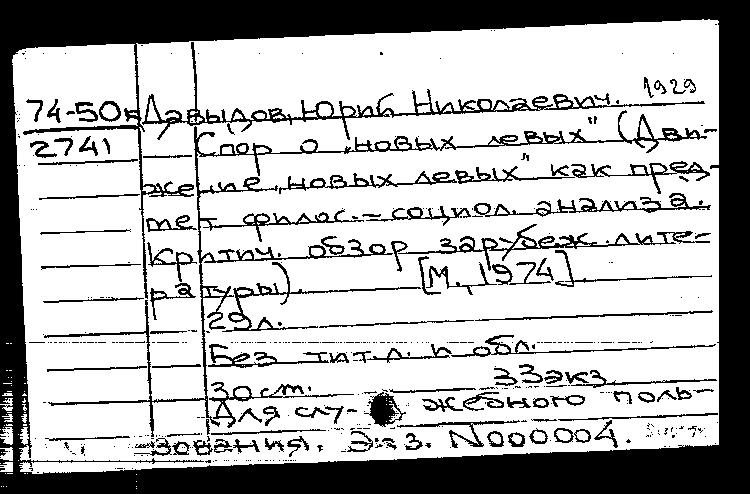 74-50к Давыдов, Юрий Николаевич. 1929
2741 Спор о „новых левых" (Дви-
жение „новых левых" как пред-
мет филос.-социол. анализа.
Критич. обзор зарубеж. лите-
ратуры). [М., 1974].
29л.
Без тит. л. и обл.
30 см. 33экз.
Для слу- жебного поль-
зования. Экз. N000004.